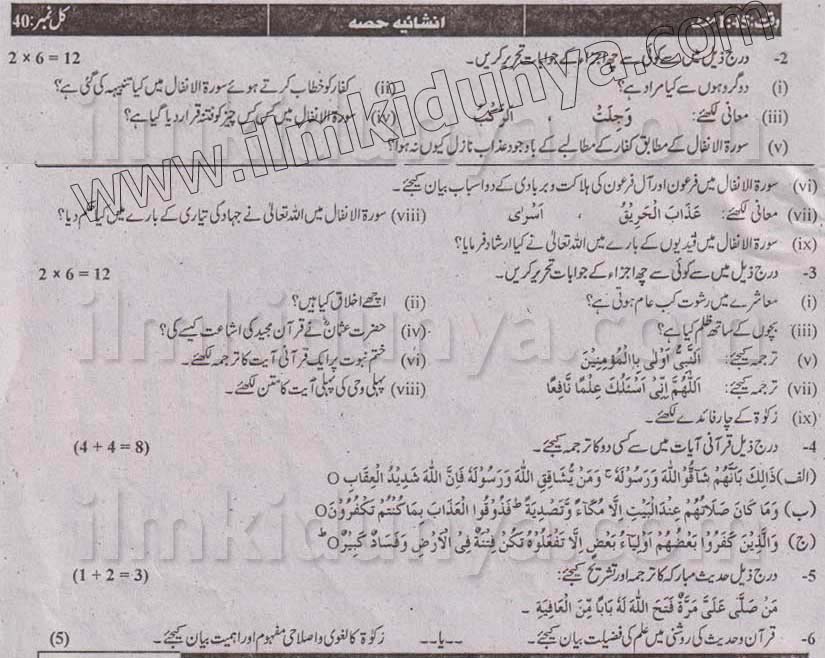 وقت: 1:45 منٹ انشائیہ حصہ کل نمبر: 40
2- درج ذیل میں سے کوئی سے چھ اجزاء کے جوابات تحریر کریں۔ 2 × 6 = 12
(i) دو گروہوں سے کیا مراد ہے؟ (ii) کفار کو خطاب کرتے ہوئے سورۃ الانفال میں کیا تنبیہہ کی گئی ہے؟
(iii) معانی لکھئے: وَجِلَتْ ، اَلرَّکْبُ (iv) سورۃ الانفال میں کس کس چیز کو فتنہ قرار دیا گیا ہے؟
(v) سورۃ الانفال کے مطابق کفار کے مطالبے کے باوجود عذاب نازل کیوں نہ ہوا؟
(vi) سورۃ الانفال میں فرعون اور آل فرعون کی ہلاکت و بربادی کے دو اسباب بیان کیجئے۔
(vii) معانی لکھئے: عَذَابَ الْحَرِیْقِ ، اَسْرٰی (viii) سورۃ الانفال میں اللہ تعالیٰ نے جہاد کی تیاری کے بارے میں کیا حکم دیا؟
(ix) سورۃ الانفال میں قیدیوں کے بارے میں اللہ تعالیٰ نے کیا ارشاد فرمایا؟
3- درج ذیل میں سے کوئی سے چھ اجزاء کے جوابات تحریر کریں۔ 2 × 6 = 12
(i) معاشرے میں رشوت کب عام ہوتی ہے؟ (ii) اچھے اخلاق کیا ہیں؟
(iii) بچوں کے ساتھ ظلم کیا ہے؟ (iv) حضرت عثمانؓ نے قرآن مجید کی اشاعت کیسے کی؟
(v) ترجمہ کیجئے: اَلنَّبِیُّ اَوْلٰی بِالْمُؤْمِنِیْنَ (vi) ختم نبوت پر ایک قرآنی آیت کا ترجمہ لکھئے۔
(vii) ترجمہ کیجئے: اَللّٰھُمَّ اِنِّیْ اَسْئَلُکَ عِلْمًا نَّافِعًا (viii) پہلی وحی کی پہلی آیت کا متن لکھئے۔
(ix) زکوٰۃ کے چار فائدے لکھئے۔
4- درج ذیل قرآنی آیات میں سے کسی دو کا ترجمہ کیجئے۔ (4 + 4 = 8)
(الف) ذَالِکَ بِاَنَّھُمْ شَآقُّوا اللّٰہَ وَرَسُوْلَہٗ ۚ وَمَنْ یُّشَاقِقِ اللّٰہَ وَرَسُوْلَہٗ فَاِنَّ اللّٰہَ شَدِیْدُ الْعِقَابِ O
(ب) وَمَا کَانَ صَلَاتُھُمْ عِنْدَ الْبَیْتِ اِلَّا مُکَآءً وَّتَصْدِیَۃً ط فَذُوْقُوا الْعَذَابَ بِمَا کُنْتُمْ تَکْفُرُوْنَ O
(ج) وَالَّذِیْنَ کَفَرُوْا بَعْضُھُمْ اَوْلِیَآءُ بَعْضٍ اِلَّا تَفْعَلُوْہُ تَکُنْ فِتْنَۃٌ فِی الْاَرْضِ وَفَسَادٌ کَبِیْرٌ O ط
5- درج ذیل حدیث مبارکہ کا ترجمہ اور تشریح کیجئے: (1 + 2 = 3)
مَنْ صَلّٰی عَلَیَّ مَرَّۃً فَتَحَ اللّٰہُ لَہٗ بَابًا مِّنَ الْعَافِیَۃِ ۔
6- قرآن و حدیث کی روشنی میں علم کی فضیلت بیان کیجئے۔ --یا-- زکوٰۃ کا لغوی و اصلاحی مفہوم اور اہمیت بیان کیجئے۔ (5)
www.ilmkidunya.com
ilmkidunya.com
ilmkidunya.com
ilmkidunya.com